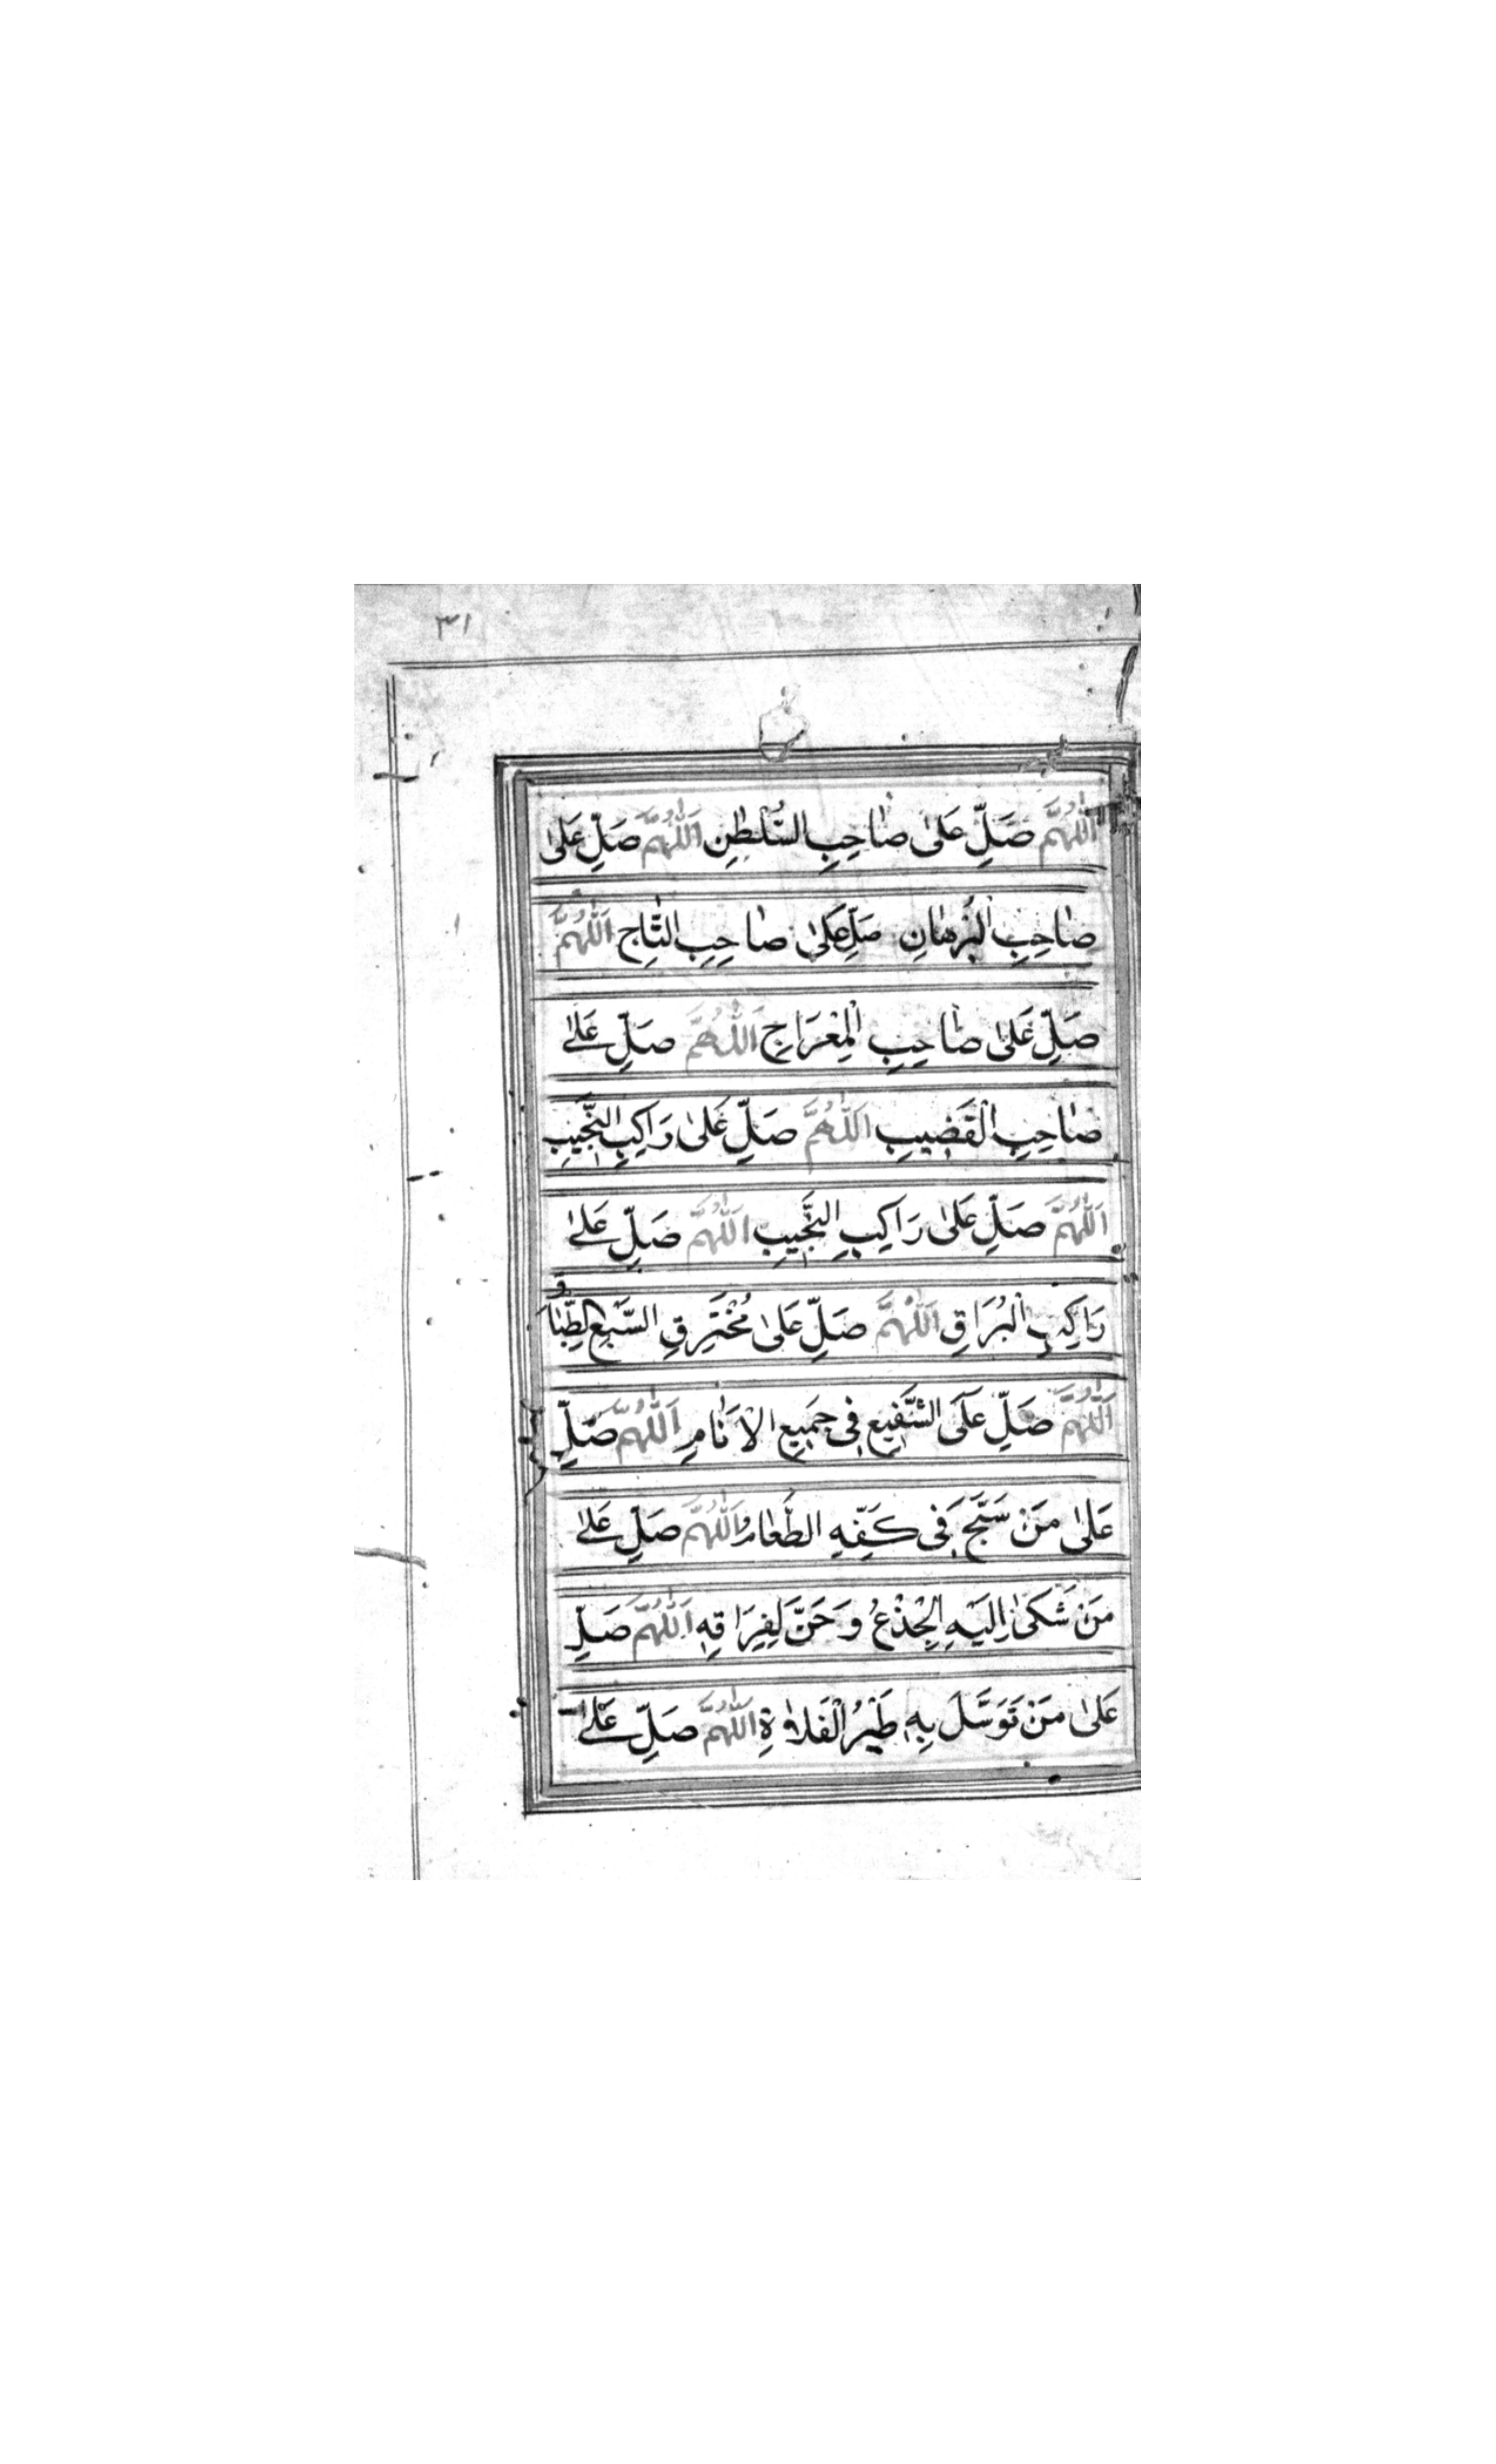 ٣١
اَللّٰهُمَّ صَلِّ عَلٰى صٰاحِبِ السُّلْطٰنِ اَللّٰهُمَّ صَلِّ عَلٰى
صٰاحِبِ الْبُرْهٰانِ صَلِّ عَلٰى صٰاحِبِ التّٰاجِ اَللّٰهُمَّ
صَلِّ عَلٰى صٰاحِبِ الْمِعْرَاجِ اَللّٰهُمَّ صَلِّ عَلٰى
صٰاحِبِ الْقَضِيبِ اَللّٰهُمَّ صَلِّ عَلٰى رَاكِبِ النَّجِيبِ
اَللّٰهُمَّ صَلِّ عَلٰى رَاكِبِ النَّجِيبِ اَللّٰهُمَّ صَلِّ عَلٰى
رَاكِبِ الْبُرَاقِ اَللّٰهُمَّ صَلِّ عَلٰى مُخْتَرِقِ السَّبْعِ الطِّبَاقِ
اَللّٰهُمَّ صَلِّ عَلَى الشَّفِيعِ فِى جَمِيعِ الْاَنٰامِ اَللّٰهُمَّ صَلِّ
عَلٰى مَنْ سَبَّحَ فِى كَفِّهِ الطَّعٰامُ اَللّٰهُمَّ صَلِّ عَلٰى
مَنْ شَكٰى اِلَيْهِ الْجِذْعُ وَحَنَّ لِفِرَاقِهِ اَللّٰهُمَّ صَلِّ
عَلٰى مَنْ تَوَسَّلَ بِهِ طَيْرُ الْفَلاٰةِ اَللّٰهُمَّ صَلِّ عَلٰى